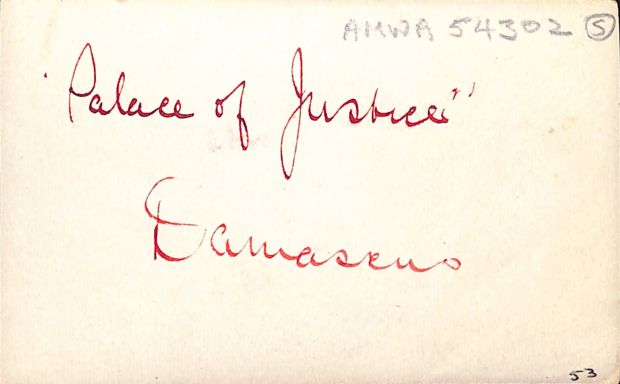 AMWA 54302 (S)
"Palace of Justice"
Damascus
53